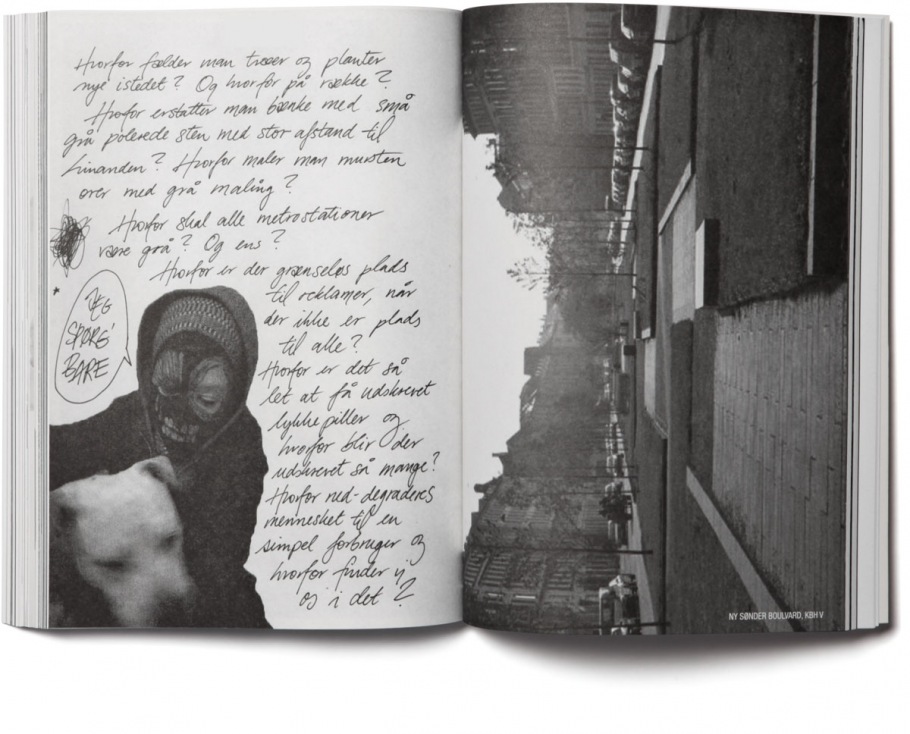 Hvorfor fælder man træer og planter
nye istedet? Og hvorfor på række?
Hvorfor erstatter man bænke med små
grå polerede sten med stor afstand til
hinanden? Hvorfor maler man mursten
over med grå maling?
Hvorfor skal alle metrostationer
være grå? Og ens?
Hvorfor er der grænseløs plads
til reklamer, når
der ikke er plads
til alle?
Hvorfor er det så
let at få udskrevet
lykkepiller og
hvorfor blir der
udskrevet så mange?
Hvorfor ned-degraderes
mennesket til en
simpel forbruger og
hvorfor finder vi
os i det?
JEG
SPØRG'
BARE
NY SØNDER BOULVARD, KBH V